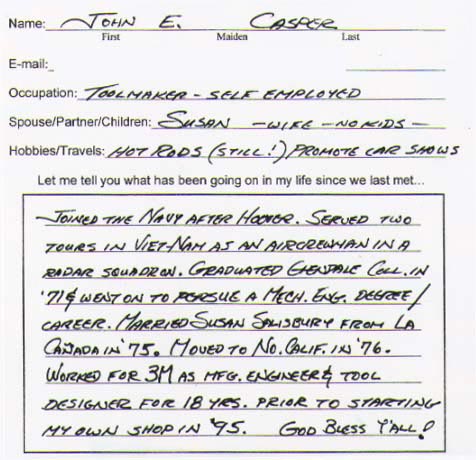 Name: JOHN E. CASPER
First Maiden Last
E-mail:
Occupation: TOOLMAKER - SELF EMPLOYED
Spouse/Partner/Children: SUSAN - WIFE - NO KIDS -
Hobbies/Travels: HOT RODS (STILL!) PROMOTE CAR SHOWS
Let me tell you what has been going on in my life since we last met...
JOINED THE NAVY AFTER HOOVER. SERVED TWO
TOURS IN VIET-NAM AS AN AIRCREWMAN IN A
RADAR SQUADRON. GRADUATED GLENDALE COLL. IN
'71 & WENT ON TO PERSUE A MECH. ENG. DEGREE/
CAREER. MARRIED SUSAN SALISBURY FROM LA
CAÑADA IN '75. MOVED TO NO. CALIF. IN '76.
WORKED FOR 3M AS MFG. ENGINEER & TOOL
DESIGNER FOR 18 YRS. PRIOR TO STARTING
MY OWN SHOP IN '95. GOD BLESS Y'ALL!